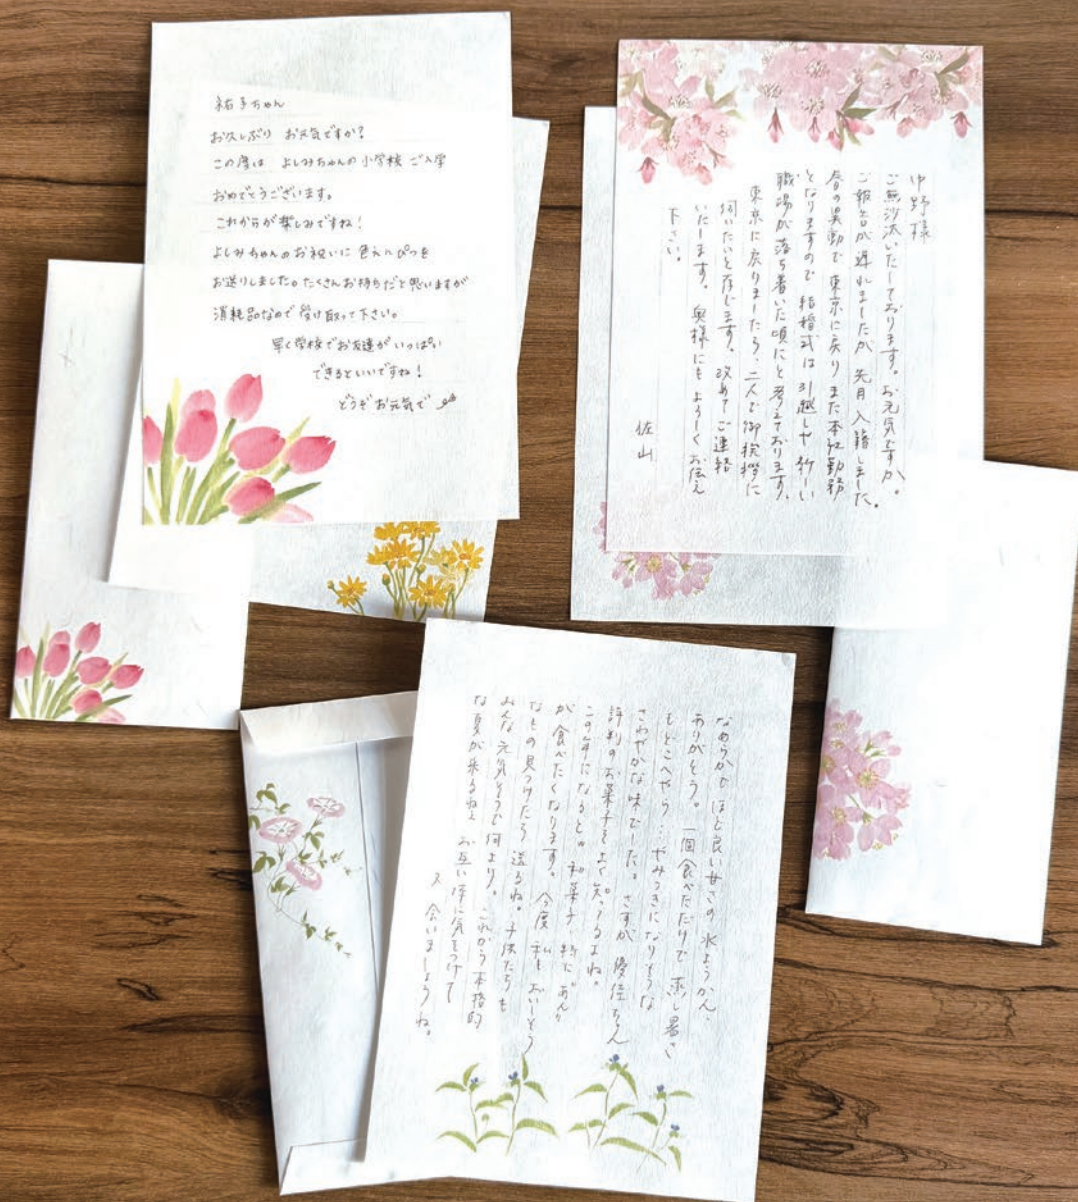 祐子ちゃん
お久しぶり お元気ですか?
この度は よしみちゃんの小学校 ご入学
おめでとうございます。
これからが楽しみですね!
よしみちゃんのお祝いに 色えんぴつを
お送りしました。たくさんお持ちだと思いますが
消耗品なので受け取って下さい。
早く学校でお友達がいっぱい
できるといいですね!
どうぞお元気で
中野様
ご無沙汰いたしております。お元気ですか。
ご報告が遅れましたが 先月 入籍しました。
春の異動で 東京に戻り また本社勤務
となりますので 結婚式は 引越しや 新しい
職場が落ち着いた頃にと考えております。
東京に戻りましたら、二人で御挨拶に
伺いたいと存じます。改めてご連絡
いたします。奥様にも よろしくお伝え
下さい。
佐山
なめらかで ほど良い甘さの 水ようかん、
ありがとう。一個食べただけで 蒸し暑さ
もどこへやら…やみつきになりそうな
さわやかな味でした。さすが 優佳ちゃん
評判のお菓子をよく知ってるよね。
この年になると〝和菓子 特に〝あん〟
が食べたくなります。今度 私も おいしそう
なもの見つけたら 送るね。子供たちも
みんな元気そうで何より。これから本格的
な夏が来るねぇ お互い体に気をつけて
又 会いましょうね。